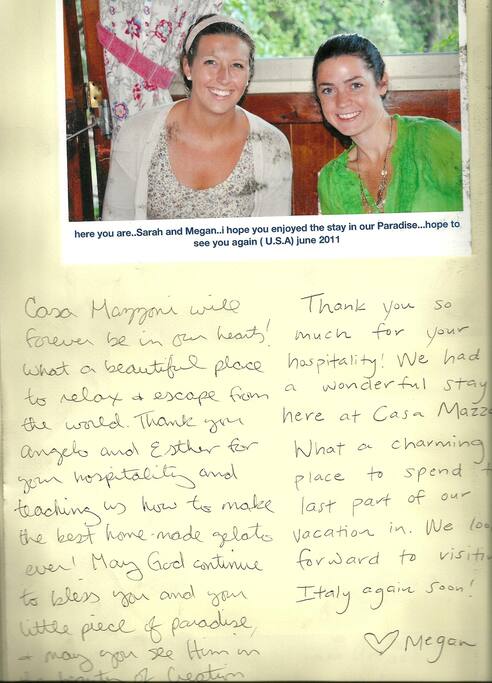 here you are..Sarah and Megan..i hope you enjoyed the stay in our Paradise...hope to
see you again ( U.S.A) june 2011
Casa Mazzoni will
forever be in our hearts!
What a beautiful place
to relax + escape from
the world. Thank you
Angelo and Esther for
your hospitality and
teaching us how to make
the best home-made gelato
ever! May God continue
to bless you and your
little piece of paradise,
+ may you see Him in
the beauty of Creation
Thank you so
much for your
hospitality! We had
a wonderful stay
here at Casa Mazzo
What a charming
place to spend t
last part of our
vacation in. We loo
forward to visiti
Italy again soon!
♡ Megan